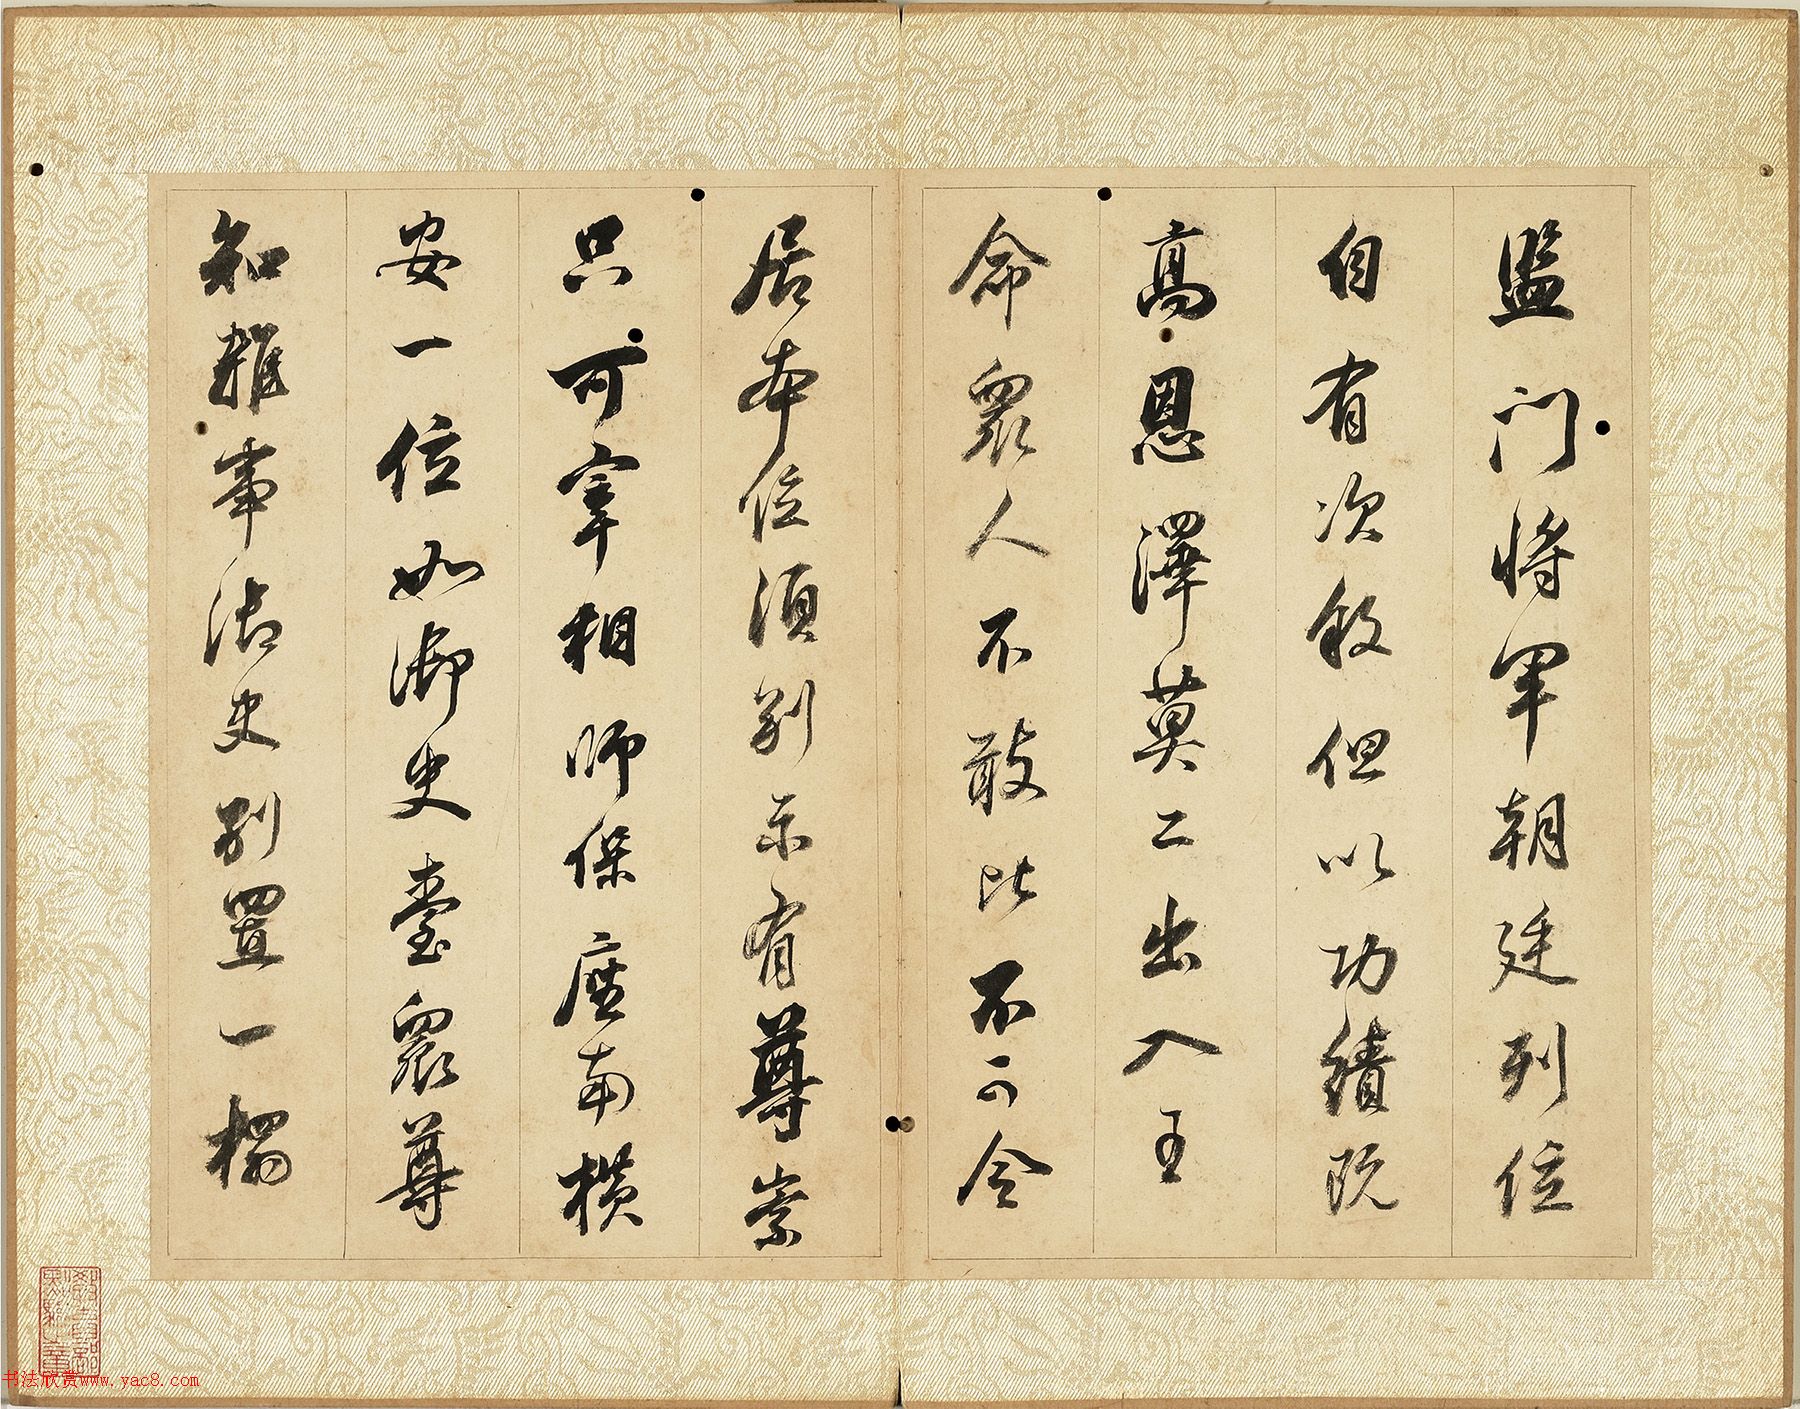 監門將軍朝廷列位
自有次敘但以功績既
高恩澤莫二出入王
命眾人不敢比不可令
居本位須別示有尊崇
只可宰相師保座南橫
安一位如御史臺眾尊
知雜事御史別置一榻
书法欣赏www.yac8.com